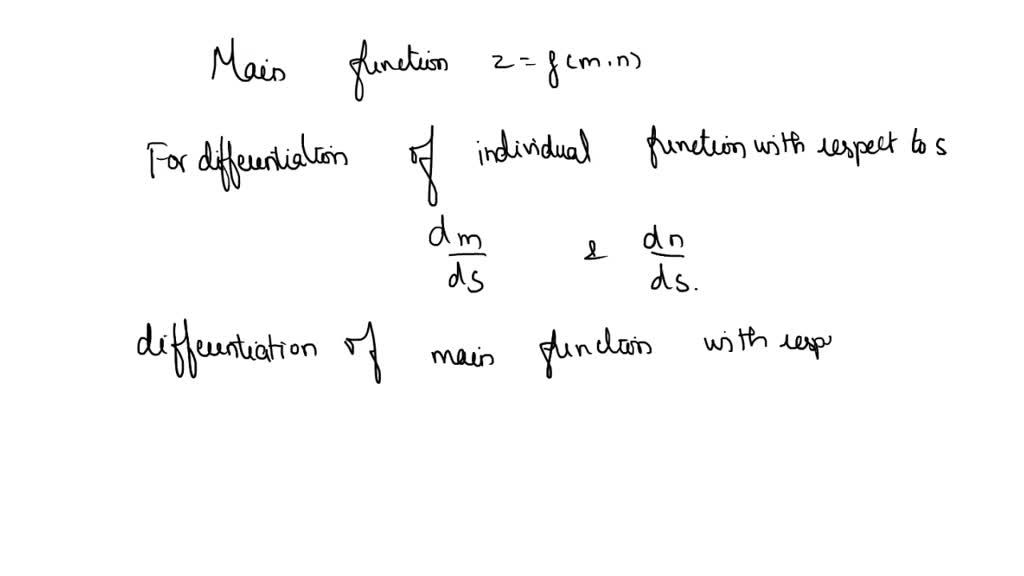 Main function z = f(m,n)
For differentiation of individual function with respect to s
dm/ds & dn/ds.
differentiation of main function with resp